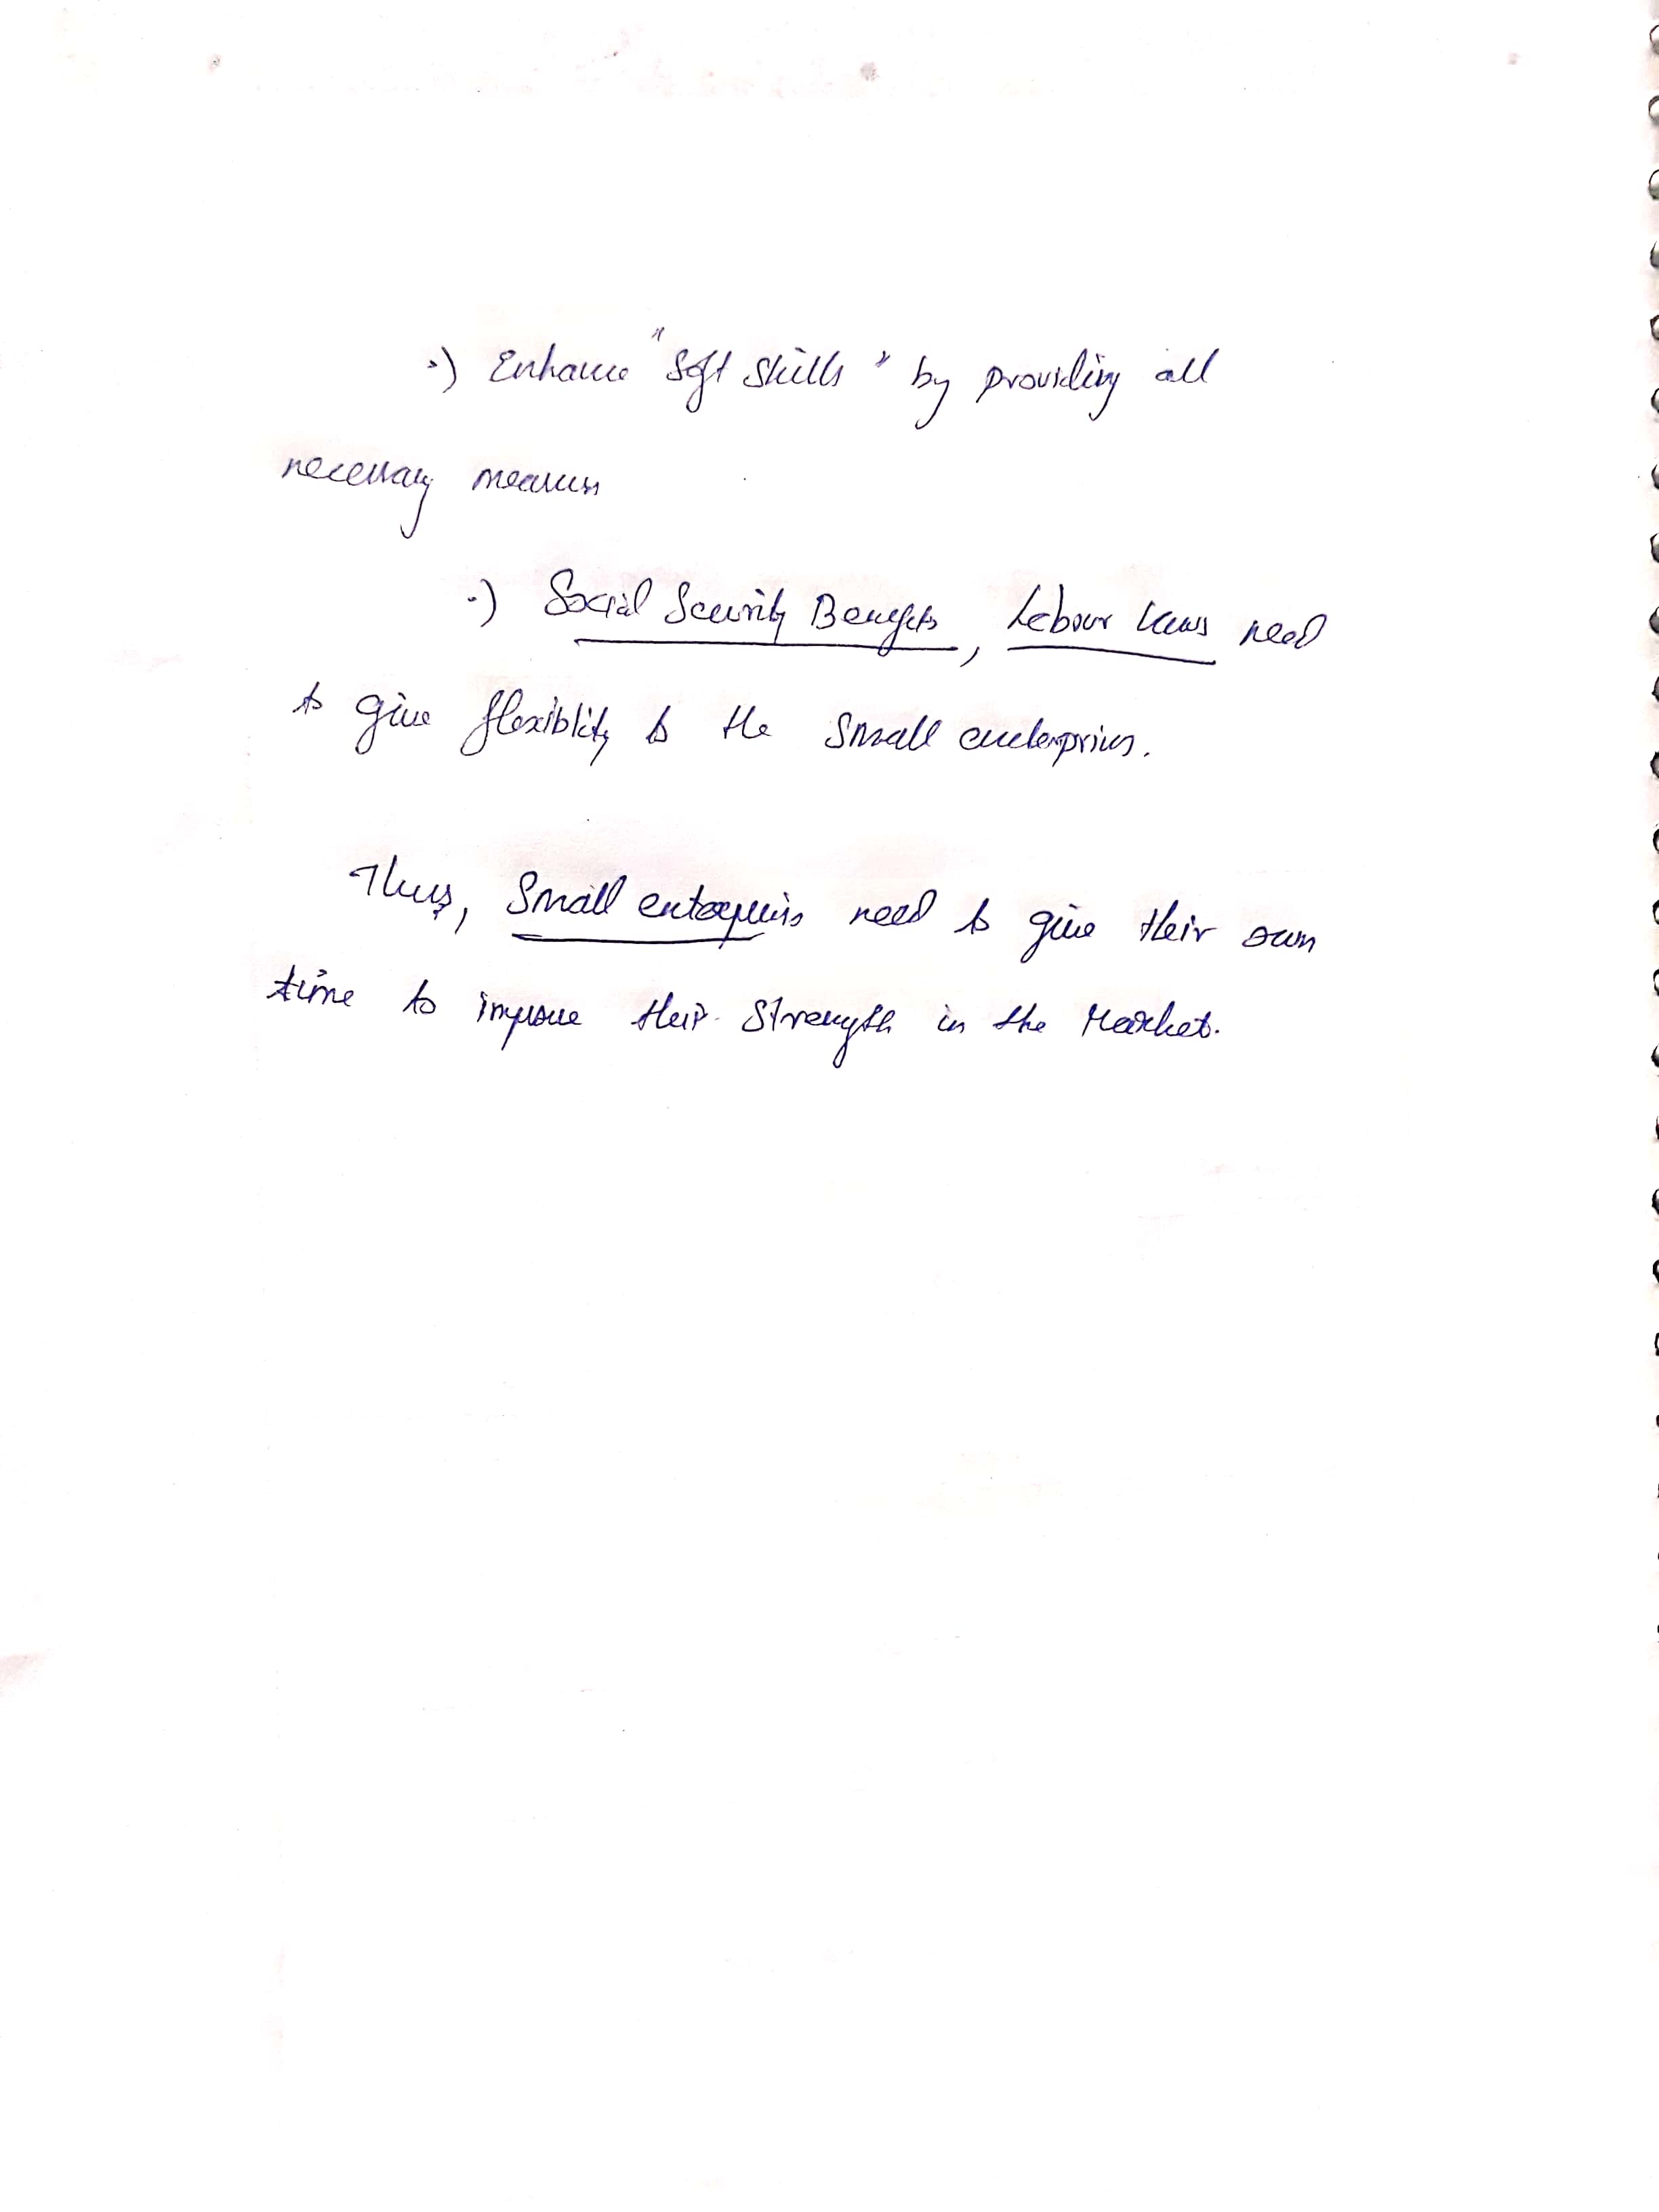 ·) Enhance "Soft Skills" by providing all
necessary measures
·) Social Security Benefits, Labour Laws need
to give flexiblity to the small enterprises.
Thus, Small enterprises need to give their own
time to improve their strength in the Market.